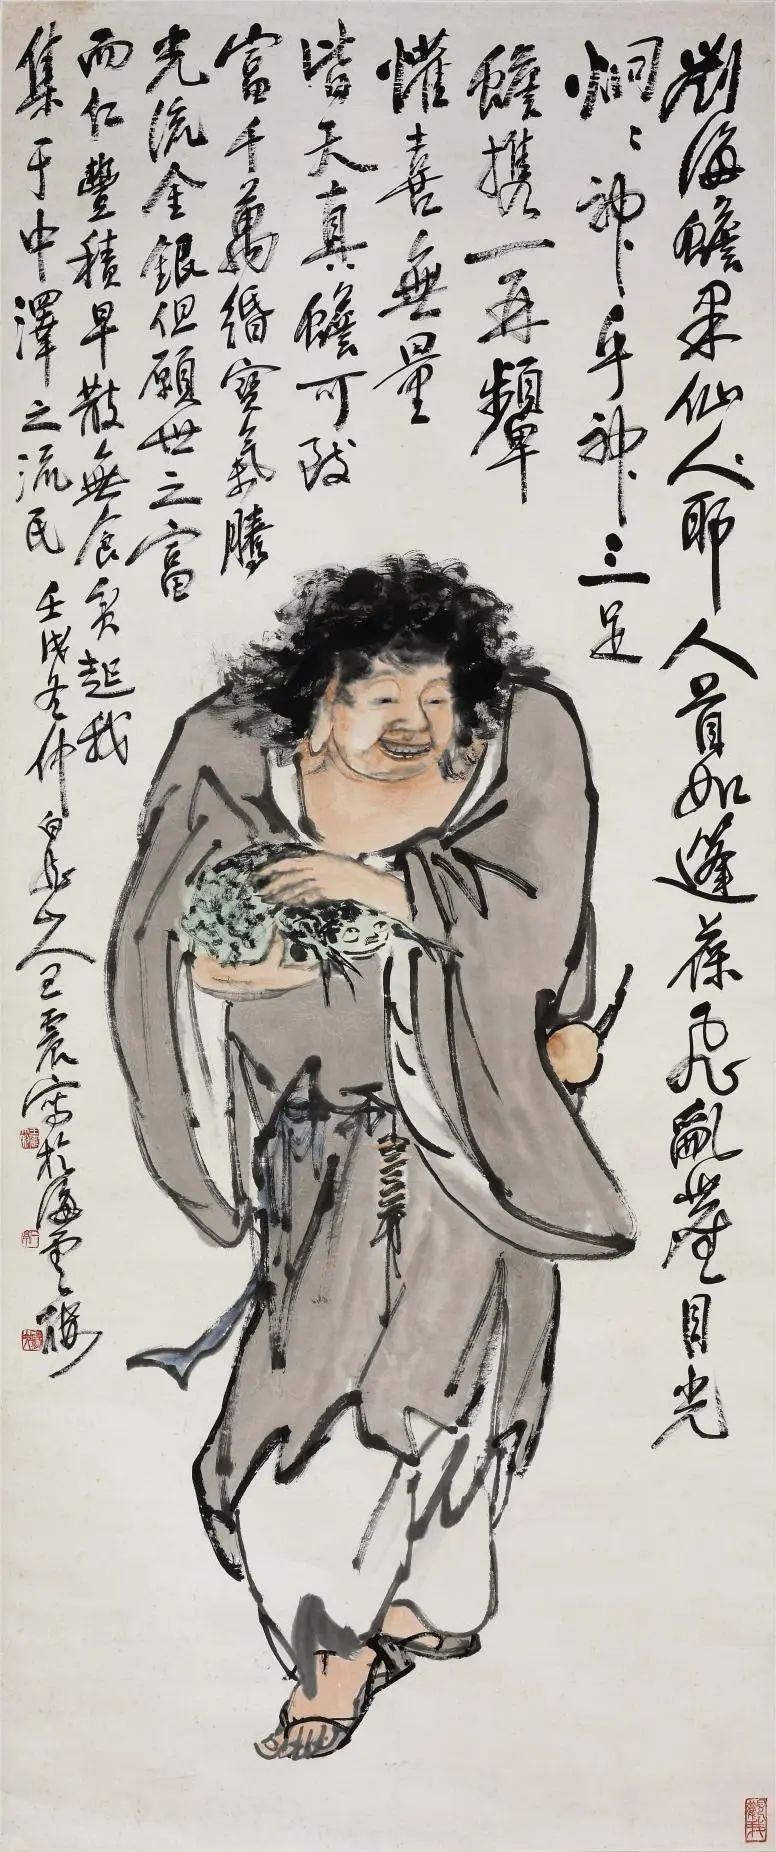 劉海蟾果仙人耶人首如蓬葆飛亂塵目光
炯〻神乎神三足
蟾攜一再頻
懽喜無量
皆天真蟾可致
富千萬緡寶氣騰
光流金銀但願世之富
而仁豐積早散無食貧起我
集于中澤之流民
壬戌冬仲白龍山人王震寫於海雲樓